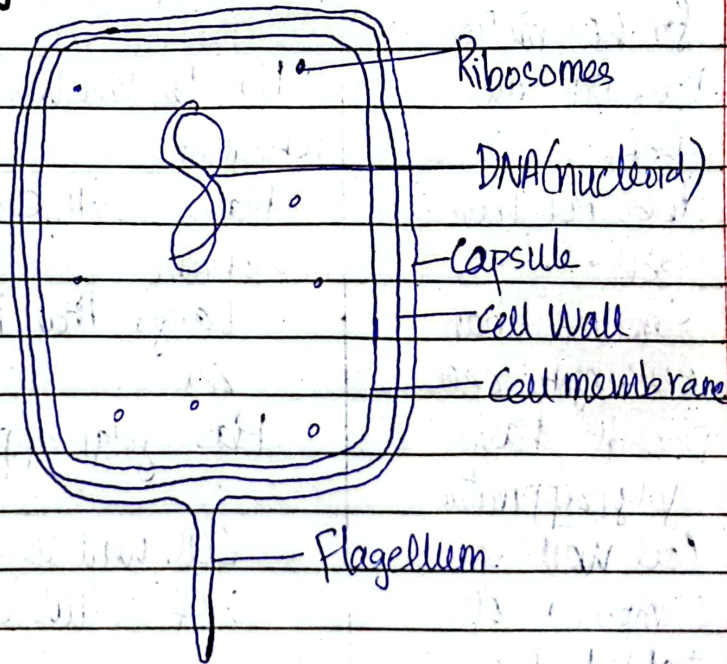 Ribosomes
DNA(nucleoid)
Capsule
Cell Wall
Cell membrane
Flagellum.